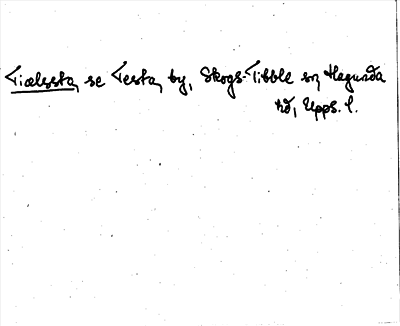 Tiælssta, se Testa, by, Skogs-Tibble sn, Hagunda
hd, Upps. l.